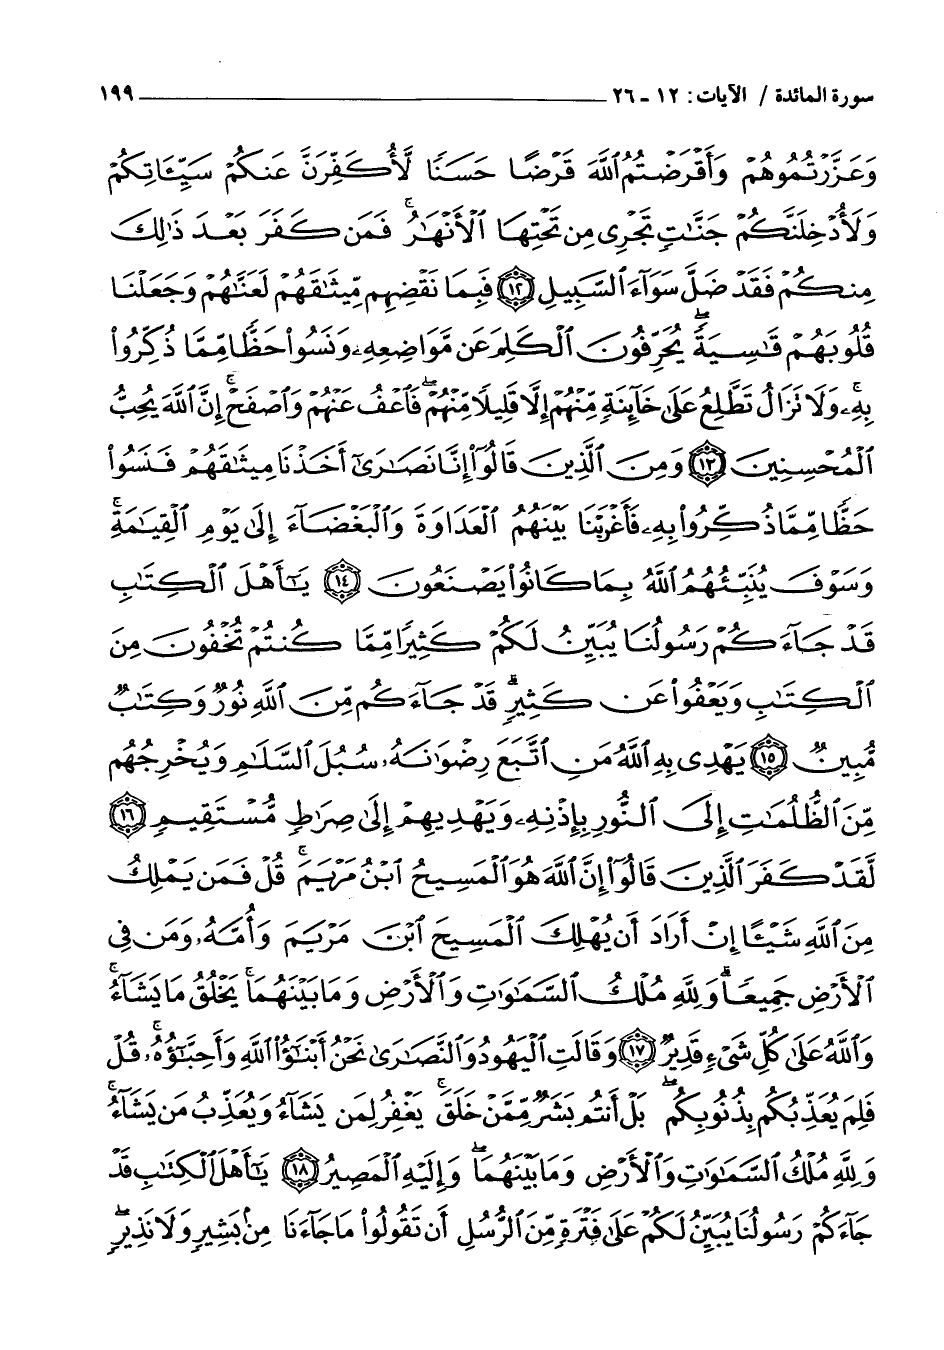 سورة المائدة / الآيات: ١٢ - ٢٦ ١٩٩
وَعَزَّرْتُمُوهُمْ وَأَقْرَضْتُمُ ٱللَّهَ قَرْضًا حَسَنًا لَّأُكَفِّرَنَّ عَنكُمْ سَيِّـَٔاتِكُمْ
وَلَأُدْخِلَنَّكُمْ جَنَّـٰتٍ تَجْرِى مِن تَحْتِهَا ٱلْأَنْهَـٰرُ ۚ فَمَن كَفَرَ بَعْدَ ذَٰلِكَ
مِنكُمْ فَقَدْ ضَلَّ سَوَآءَ ٱلسَّبِيلِ ١٢ فَبِمَا نَقْضِهِم مِّيثَـٰقَهُمْ لَعَنَّـٰهُمْ وَجَعَلْنَا
قُلُوبَهُمْ قَـٰسِيَةً ۖ يُحَرِّفُونَ ٱلْكَلِمَ عَن مَّوَاضِعِهِۦ وَنَسُوا۟ حَظًّا مِّمَّا ذُكِّرُوا۟
بِهِۦ ۚ وَلَا تَزَالُ تَطَّلِعُ عَلَىٰ خَآئِنَةٍ مِّنْهُمْ إِلَّا قَلِيلًا مِّنْهُمْ ۖ فَٱعْفُ عَنْهُمْ وَٱصْفَحْ ۚ إِنَّ ٱللَّهَ يُحِبُّ
ٱلْمُحْسِنِينَ ١٣ وَمِنَ ٱلَّذِينَ قَالُوٓا۟ إِنَّا نَصَـٰرَىٰٓ أَخَذْنَا مِيثَـٰقَهُمْ فَنَسُوا۟
حَظًّا مِّمَّا ذُكِّرُوا۟ بِهِۦ فَأَغْرَيْنَا بَيْنَهُمُ ٱلْعَدَاوَةَ وَٱلْبَغْضَآءَ إِلَىٰ يَوْمِ ٱلْقِيَـٰمَةِ ۚ
وَسَوْفَ يُنَبِّئُهُمُ ٱللَّهُ بِمَا كَانُوا۟ يَصْنَعُونَ ١٤ يَـٰٓأَهْلَ ٱلْكِتَـٰبِ
قَدْ جَآءَكُمْ رَسُولُنَا يُبَيِّنُ لَكُمْ كَثِيرًا مِّمَّا كُنتُمْ تُخْفُونَ مِنَ
ٱلْكِتَـٰبِ وَيَعْفُوا۟ عَن كَثِيرٍ ۚ قَدْ جَآءَكُم مِّنَ ٱللَّهِ نُورٌ وَكِتَـٰبٌ
مُّبِينٌ ١٥ يَهْدِى بِهِ ٱللَّهُ مَنِ ٱتَّبَعَ رِضْوَٰنَهُۥ سُبُلَ ٱلسَّلَـٰمِ وَيُخْرِجُهُم
مِّنَ ٱلظُّلُمَـٰتِ إِلَى ٱلنُّورِ بِإِذْنِهِۦ وَيَهْدِيهِمْ إِلَىٰ صِرَٰطٍ مُّسْتَقِيمٍ ١٦
لَّقَدْ كَفَرَ ٱلَّذِينَ قَالُوٓا۟ إِنَّ ٱللَّهَ هُوَ ٱلْمَسِيحُ ٱبْنُ مَرْيَمَ ۚ قُلْ فَمَن يَمْلِكُ
مِنَ ٱللَّهِ شَيْـًٔا إِنْ أَرَادَ أَن يُهْلِكَ ٱلْمَسِيحَ ٱبْنَ مَرْيَمَ وَأُمَّهُۥ وَمَن فِى
ٱلْأَرْضِ جَمِيعًا ۗ وَلِلَّهِ مُلْكُ ٱلسَّمَـٰوَٰتِ وَٱلْأَرْضِ وَمَا بَيْنَهُمَا ۚ يَخْلُقُ مَا يَشَآءُ ۚ
وَٱللَّهُ عَلَىٰ كُلِّ شَىْءٍ قَدِيرٌ ١٧ وَقَالَتِ ٱلْيَهُودُ وَٱلنَّصَـٰرَىٰ نَحْنُ أَبْنَـٰٓؤُا۟ ٱللَّهِ وَأَحِبَّـٰٓؤُهُۥ ۚ قُلْ
فَلِمَ يُعَذِّبُكُم بِذُنُوبِكُم ۖ بَلْ أَنتُم بَشَرٌ مِّمَّنْ خَلَقَ ۚ يَغْفِرُ لِمَن يَشَآءُ وَيُعَذِّبُ مَن يَشَآءُ ۚ
وَلِلَّهِ مُلْكُ ٱلسَّمَـٰوَٰتِ وَٱلْأَرْضِ وَمَا بَيْنَهُمَا ۖ وَإِلَيْهِ ٱلْمَصِيرُ ١٨ يَـٰٓأَهْلَ ٱلْكِتَـٰبِ قَدْ
جَآءَكُمْ رَسُولُنَا يُبَيِّنُ لَكُمْ عَلَىٰ فَتْرَةٍ مِّنَ ٱلرُّسُلِ أَن تَقُولُوا۟ مَا جَآءَنَا مِنۢ بَشِيرٍ وَلَا نَذِيرٍ ۖ